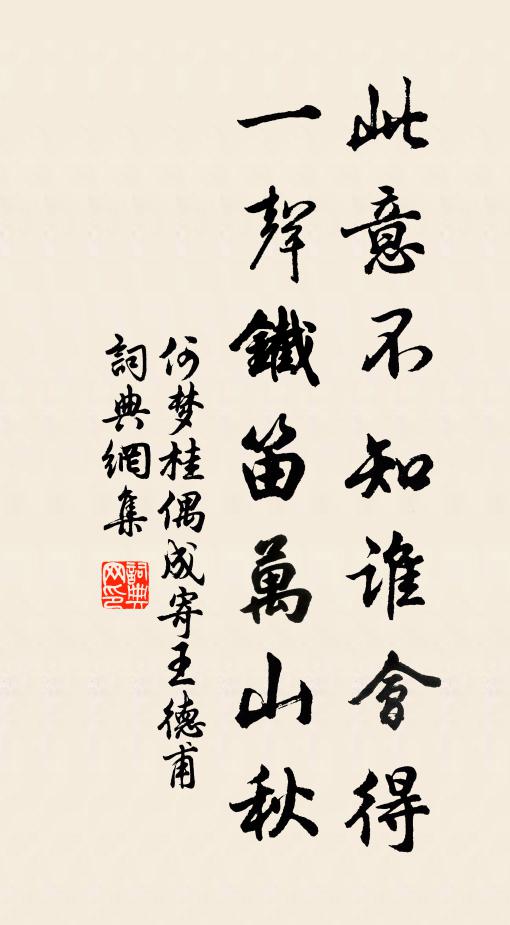 此意不知誰會得
一聲鐵笛萬山秋
何梦桂偶成寄王德甫
詞典網集
詞典
网印